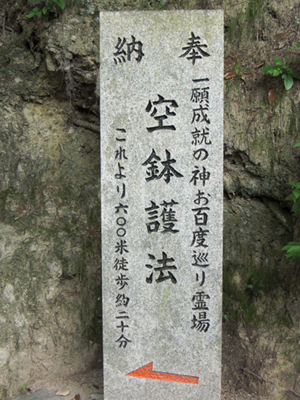 奉納
一願成就の神お百度巡り霊場
空鉢護法
これより六〇〇米徒歩約二十分